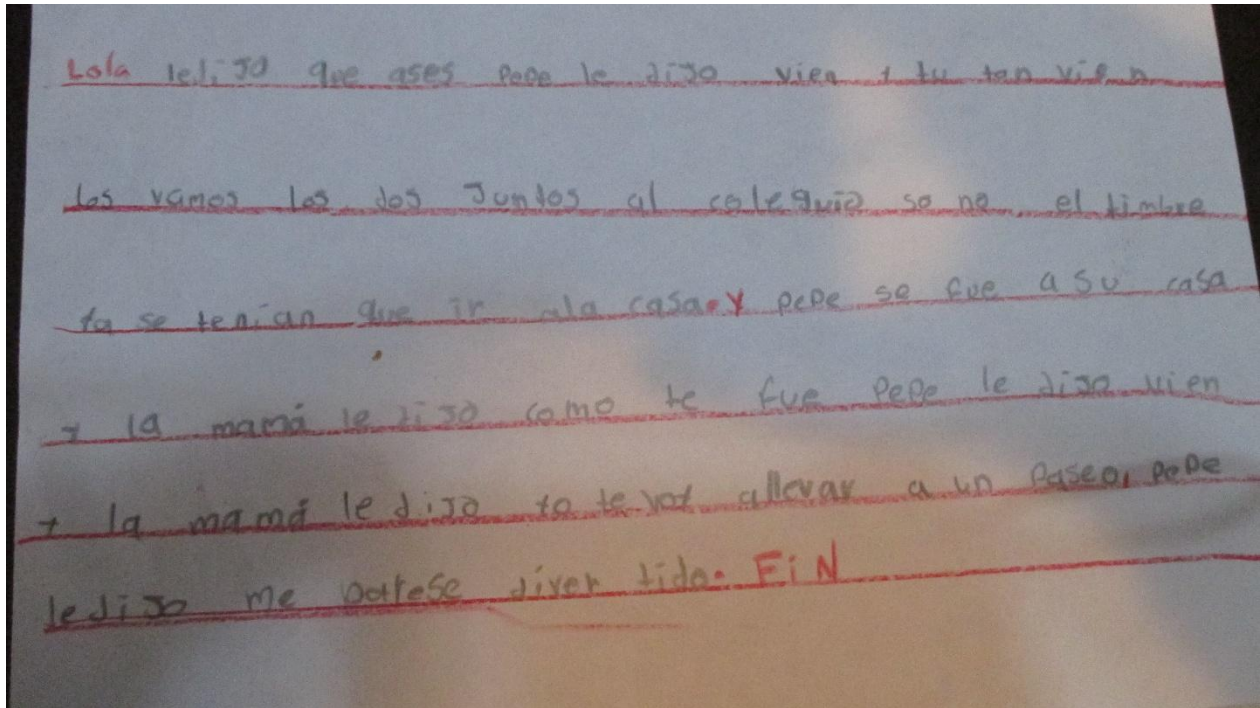 Lola ledijo que ases pepe le dijo vien y tu tan vien
los vamos los dos Juntos al coleguio so no el timbre
ya se tenian que ir ala casa. y pepe se fue a su casa
y la mamá le dijo como te fue pepe le dijo vien
y la mamá le dijo yo te voy allevar a un paseo, pepe
ledijo me parese diver tido. FiN